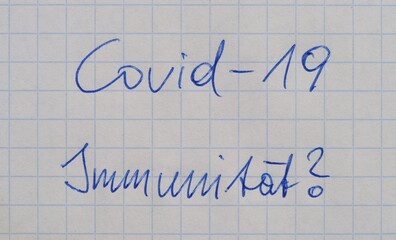 Covid-19
Immunität?